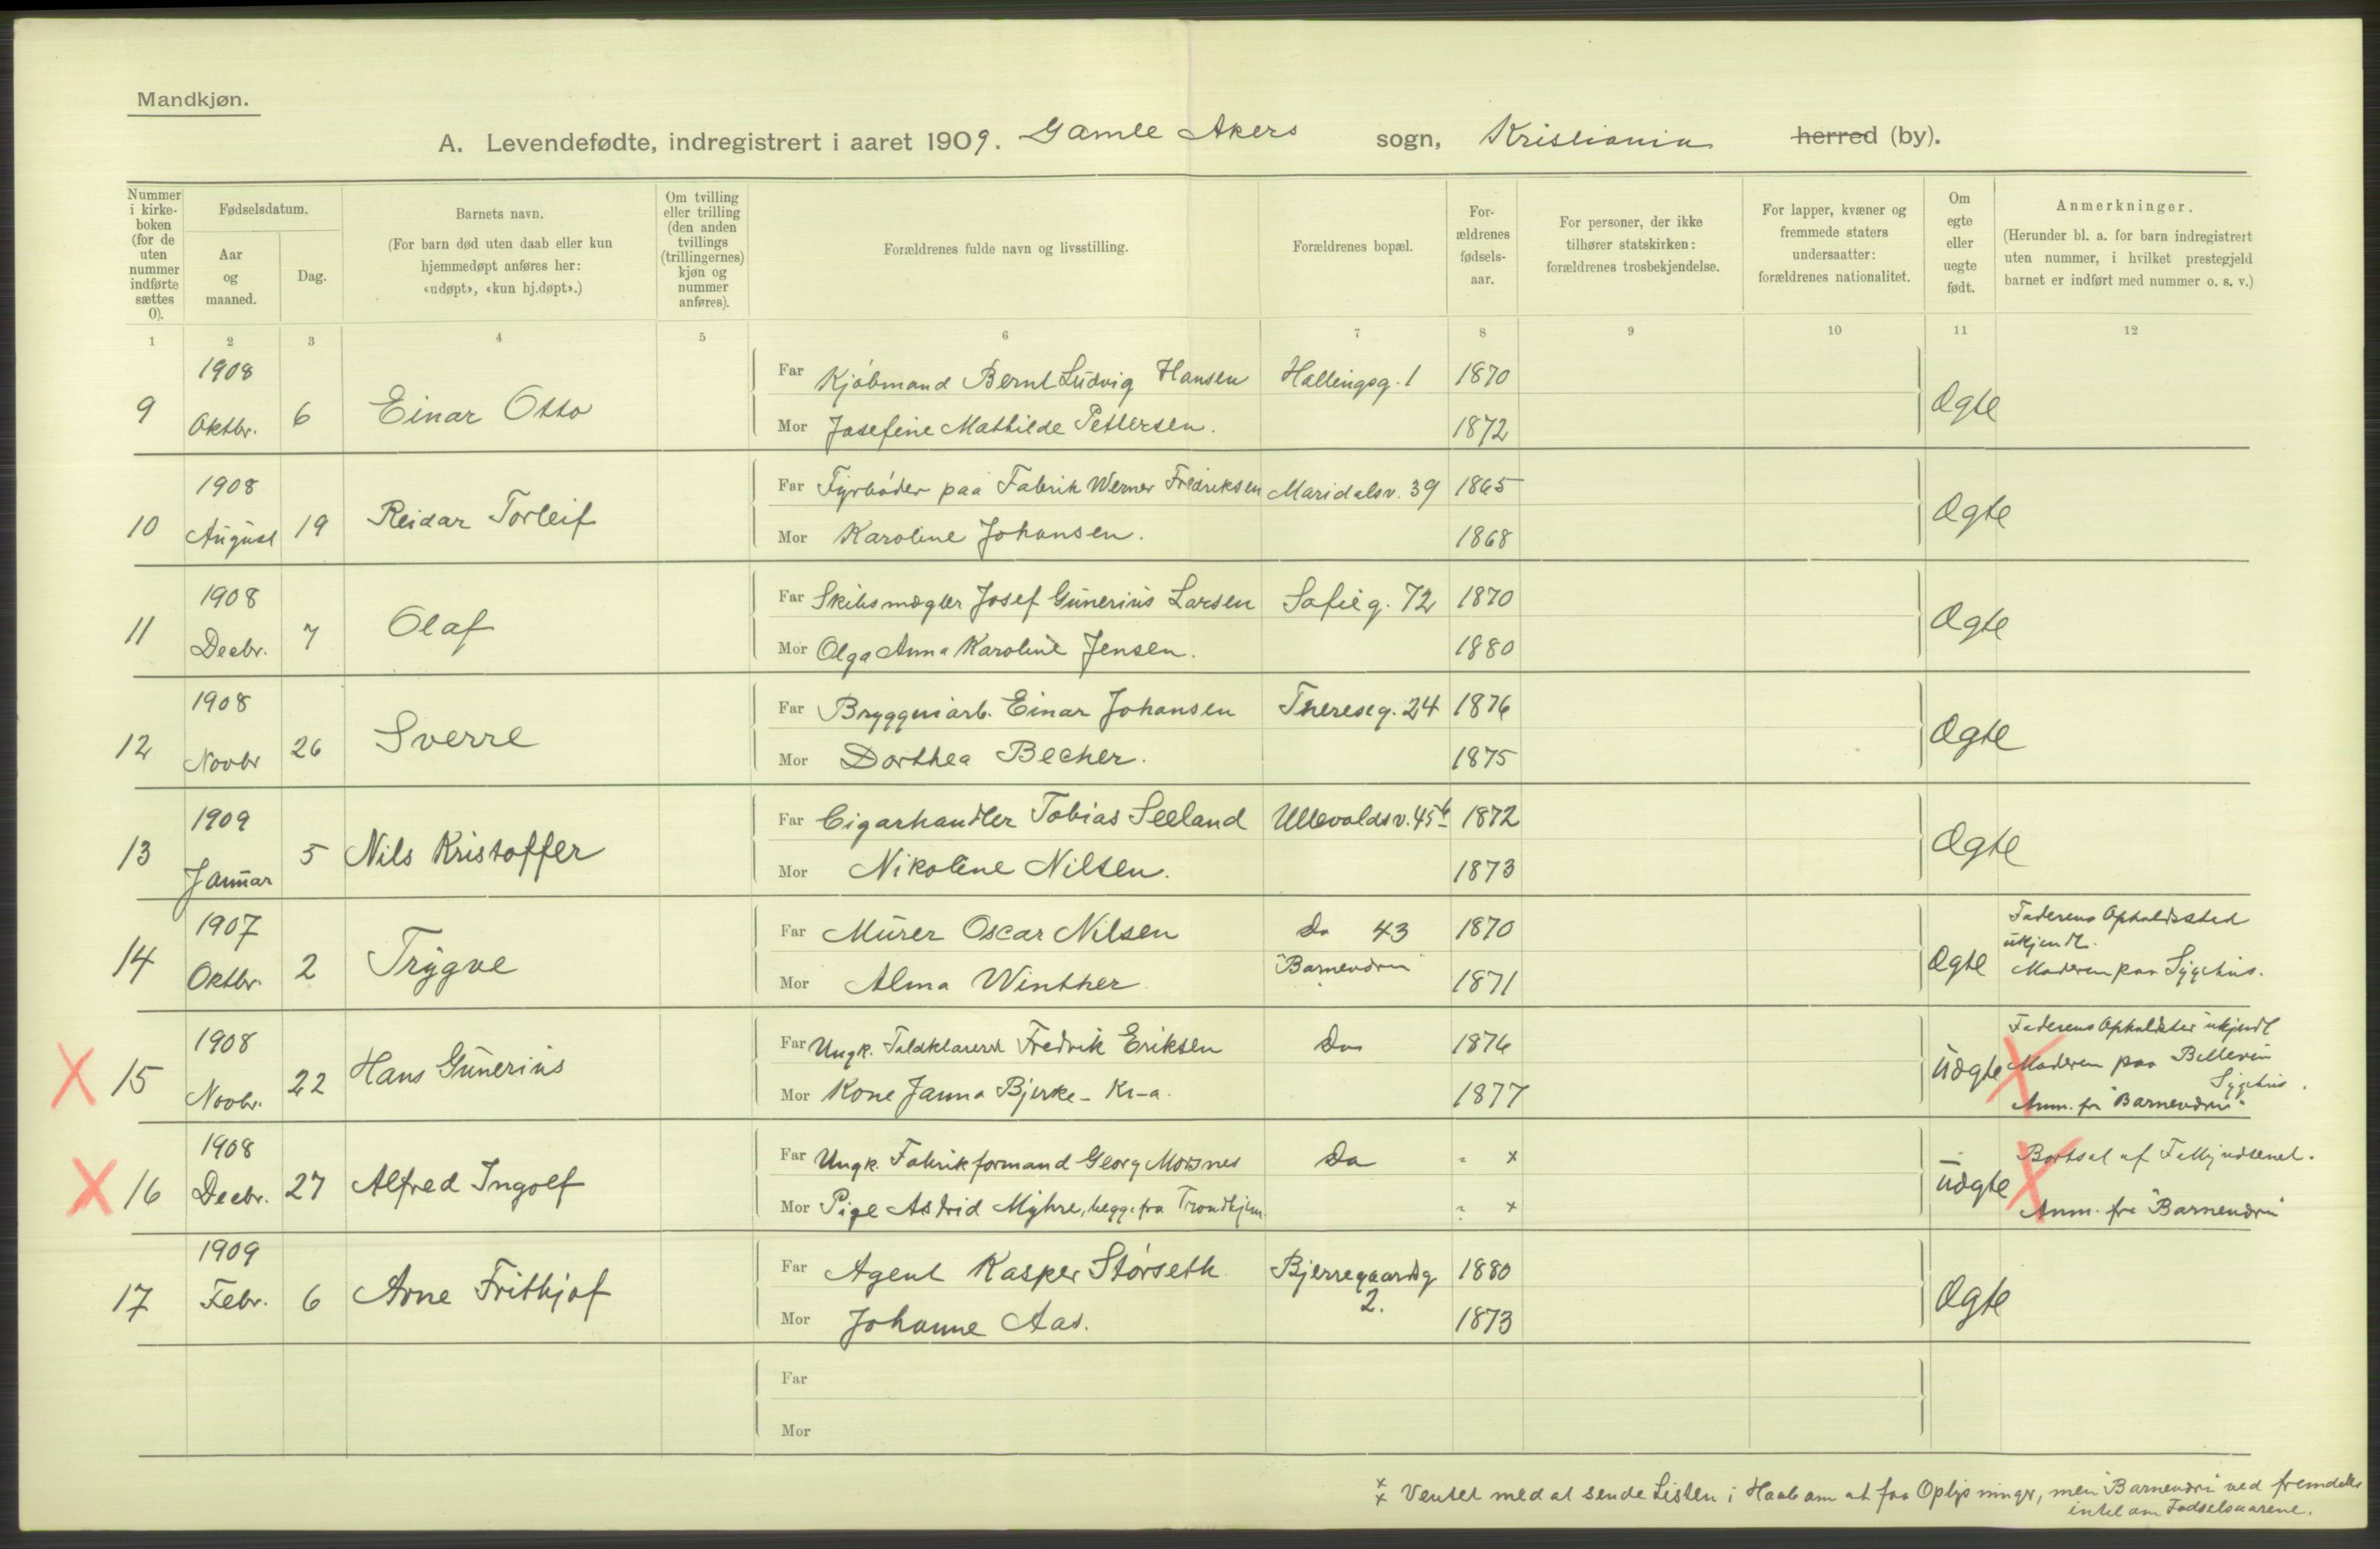 Mandkjøn.
A. Levendefødte, indregistrert i aaret 1909. Gamle Akers sogn, Kristiania herred (by).
Nummer i kirke-boken (for de uten nummer indførte sættes 0).
Fødselsdatum.
Aar og maaned.
Dag.
Barnets navn.
(For barn død uten daab eller kun hjemmedøpt anføres her: «udøpt», «kun hj.døpt».)
Om tvilling eller trilling (den anden tvillings (trillingernes) kjøn og nummer anføres).
Forældrenes fulde navn og livsstilling.
Forældrenes bopæl.
For-ældrenes fødsels-aar.
For personer, der ikke tilhører statskirken: forældrenes trosbekjendelse.
For lapper, kvæner og fremmede staters undersaatter: forældrenes nationalitet.
Om egte eller uegte født.
Anmerkninger.
(Herunder bl. a. for barn indregistrert uten nummer, i hvilket prestegjeld barnet er indført med nummer o. s. v.)
1 2 3 4 5 6 7 8 9 10 11 12
9 1908 Oktbr. 6 Einar Otto
Far Kjøbmand Bernt Ludvig Hansen Hallingsg. 1 1870 Ægte
Mor Josefine Mathilde Pettersen. 1872
10 1908 August 19 Reidar Torleif
Far Fyrbøder paa Fabrik Werner Fredriksen Maridalsv. 39 1865 Ægte
Mor Karoline Johansen. 1868
11 1908 Decbr. 7 Olaf
Far Skibsmægler Josef Gunerius Larsen Sofieg. 72 1870 Ægte
Mor Olga Anna Karoline Jensen. 1880
12 1908 Novbr 26 Sverre
Far Bryggeriarb. Einar Johansen Thereseg. 24 1876 Ægte
Mor Dorthea Becher. 1875
13 1909 Januar 5 Nils Kristoffer
Far Cigarhandler Tobias Seeland Ullevoldsv. 45b 1872 Ægte
Mor Nikoline Nilsen. 1873
14 1907 Oktbr. 2 Trygve
Far Murer Oscar Nilsen Do 43 1870 Ægte
Mor Alma Winther "Barnevær" 1871
Faderens Opholdssted
ukjendt.
Moderen paa Sygehus.
15 1908 Novbr. 22 Hans Gunerius
Far Ungk. Toldklarerer Fredrik Eriksen Do 1876 Uægte
Mor Kone Janna Bjerke - Kr-a. 1877
Faderens Opholdster ukjendt
Moderen paa Bellevue
Sygehus.
Anm. fra "Barnevær"
16 1908 Decbr. 27 Alfred Ingolf
Far Ungk. Fabrikformand Georg Do " x Uægte
Mor Pige Astrid Myhre, begge fra Trondhjem " x
Bortsat af
Anm. fra "Barnevær"
17 1909 Febr. 6 Arne Frithjof
Far Agent Kasper Størseth Bjerregaardsg 2. 1880 Ægte
Mor Johanne Aas. 1873
Far
Mor
x x Ventet med at sende Listen i Haab om at faa Oplysninger, men "Barnevær" ved fremdeles
intet om Fødselsaarene.